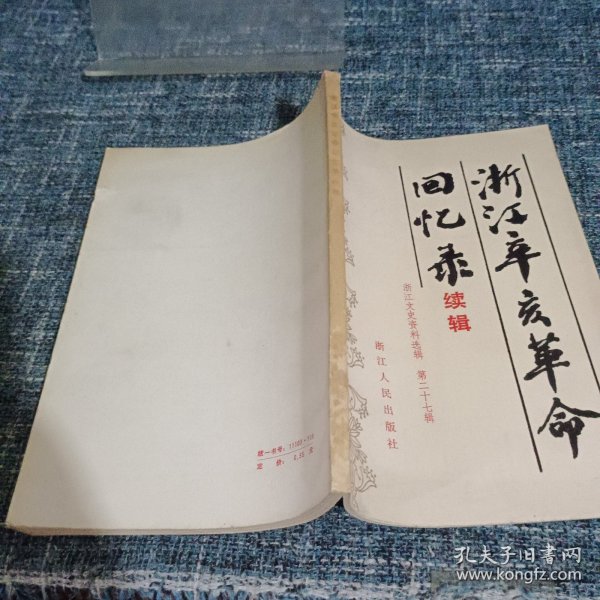 浙江辛亥革命
回忆录
续辑
浙江文史资料选辑 第二十七辑
浙江人民出版社
统一书号:
定 价:
孔夫子旧书网
www.kongfz.com